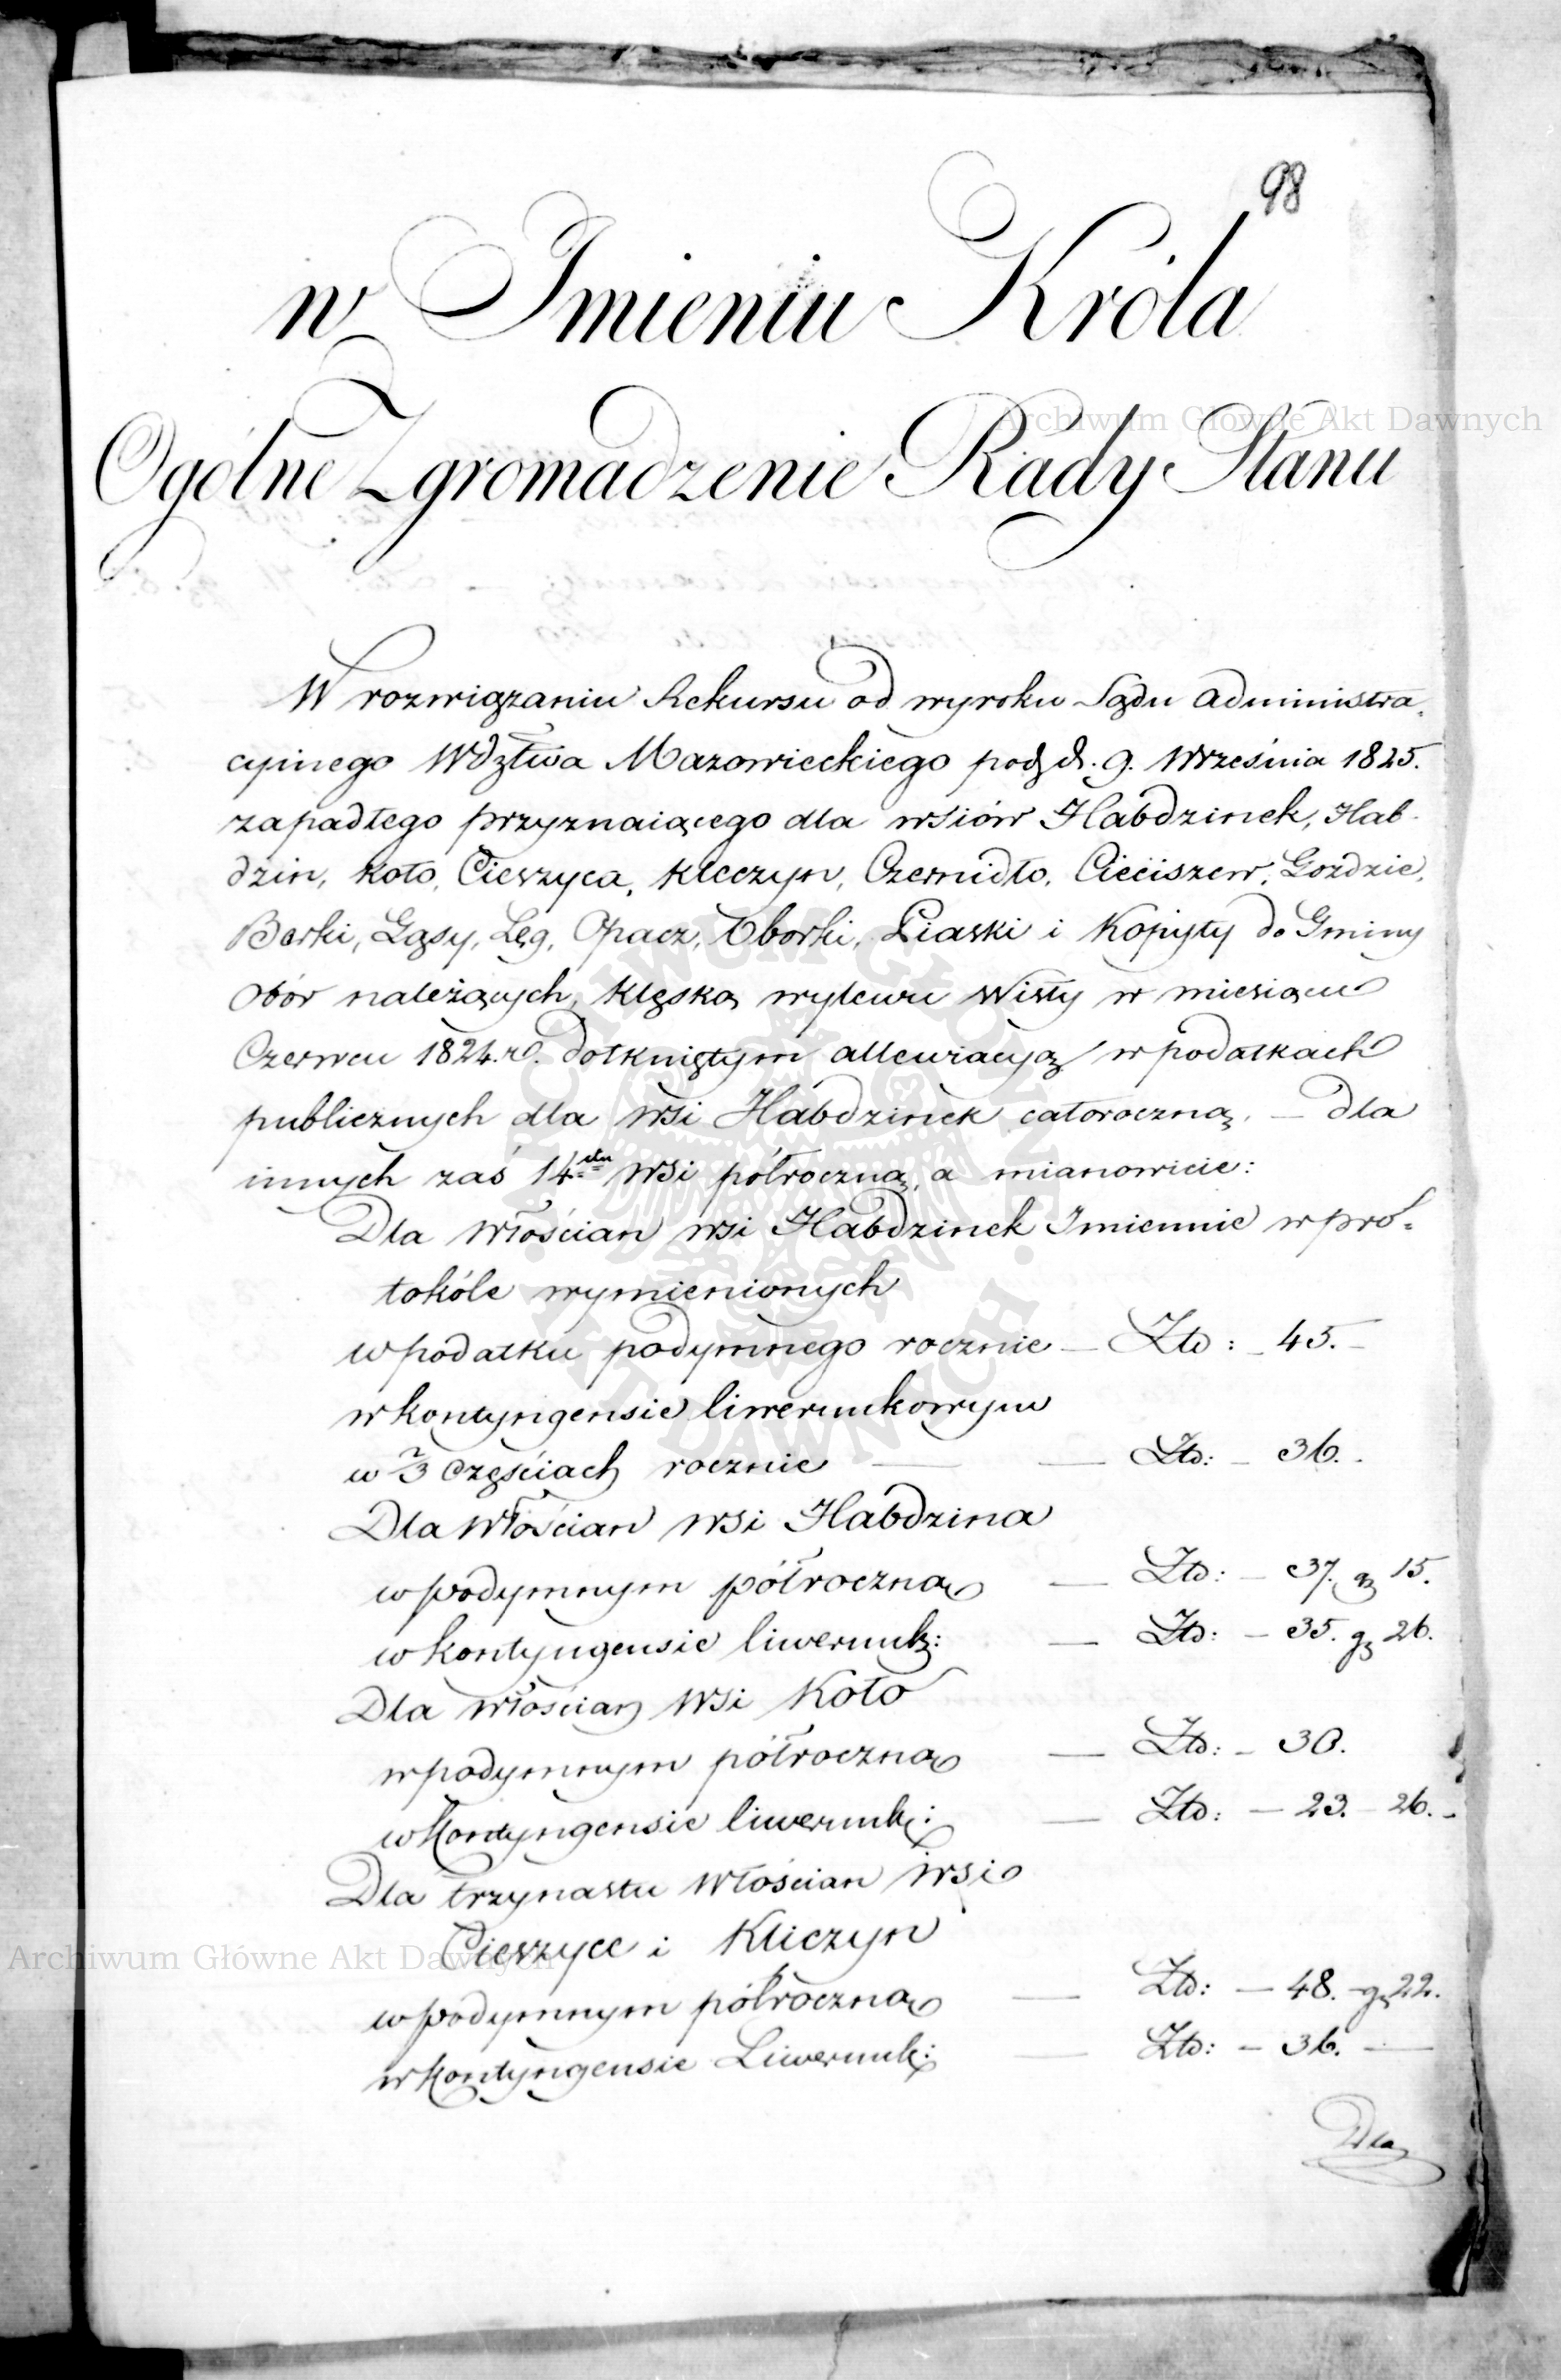 98
w Imieniu Króla
Ogólne Zgromadzenie Rady Stanu
W rozwiązaniu Rekursu od wyroku Sądu Administra-
cyinego Wdztwa Mazowieckiego pod d. 9. Września 1825.
zapadłego przyznaiącego dla wsiów Habdzinek, Hab-
dzin, Koło, Cieszyca, Kliczyn, Czernidło, Cieciszew, Gozdzie,
Borki, Gąsy, Łęg, Opacz, Oborki, Piaski i Kopyty do Gminy
Obór należących, klęską wylewu Wisły w miesiącu
Czerwcu 1824.r. dotkniętym allewiacyą w podatkach
publicznych dla wsi Habdzinek całoroczną. — dla
innych zaś 14stu wsi półroczną, a mianowicie:
Dla Włościan wsi Habdzinek Imiennie w pro-
tokóle wymienionych
w podatku podymnego rocznie — Złp: — 45. —
w kontyngensie liwerunkowym
w 2/3 Częściach rocznie — — Złp: — 36. -
Dla Włościan wsi Habdzina
w podymnym półroczną — Złp: — 37. gr 15.
w kontyngensie liwerunk: — Złp: — 35. gr 26.
Dla Włościan Wsi Koło
w podymnym półroczną — Złp: — 30.
w Kontyngensie liwerunk: — Złp: — 23. — 26. -
Dla trzynastu Włościan wsi
Cieszyce i Kliczyn
w podymnym półroczną — Złp: — 48. - gr 22.
w Kontyngensie Liwerunk: — Złp: — 36. —
Dla
Archiwum Główne Akt Dawnych
Archiwum Główne Akt Dawnych
ARCHIWUM GŁÓWNE · AKT DAWNYCH ·